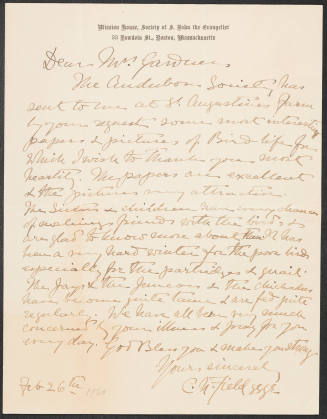 Mission House, Society of S. John the Evangelist
33 Bowdoin St., Boston, Massachusetts
Dear Mrs. Gardner,
The Audubon Society has
sent to me at St. Augustine's Farm
by your request some most interesting
papers & pictures of Bird life for
which I wish to thank you most
heartily. The papers are excellent
& the pictures very attractive.
The Sisters & children have many chances
of making friends with the birds &
are glad to know more about them. It has
been a very hard winter for the poor birds
especially for the partridges & quail.
The Jays & the Juncoes & the chickadees
have become quite tame & are fed quite
regularly. We have all been very much
concerned by your illness & pray for you
every day. God Bless you & make you strong
Yours sincerely
C. N. Field SSJE
Feb 26th 1920